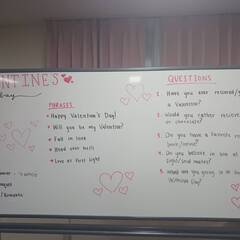 NTINES
Day
PHRASES
• Happy Valentine's Day!
• Will you be my Valentine?
• Fall in love
• Head over heels
• Love at first sight
QUESTIONS
1. Have you ever recieved/
a Valentine?
2. Would you rather recieve
or chocolate?
3. Do you have a favorite
4. Do you believe in love at
sight/soul mates?
5. What are you going to do
Valentines Day?